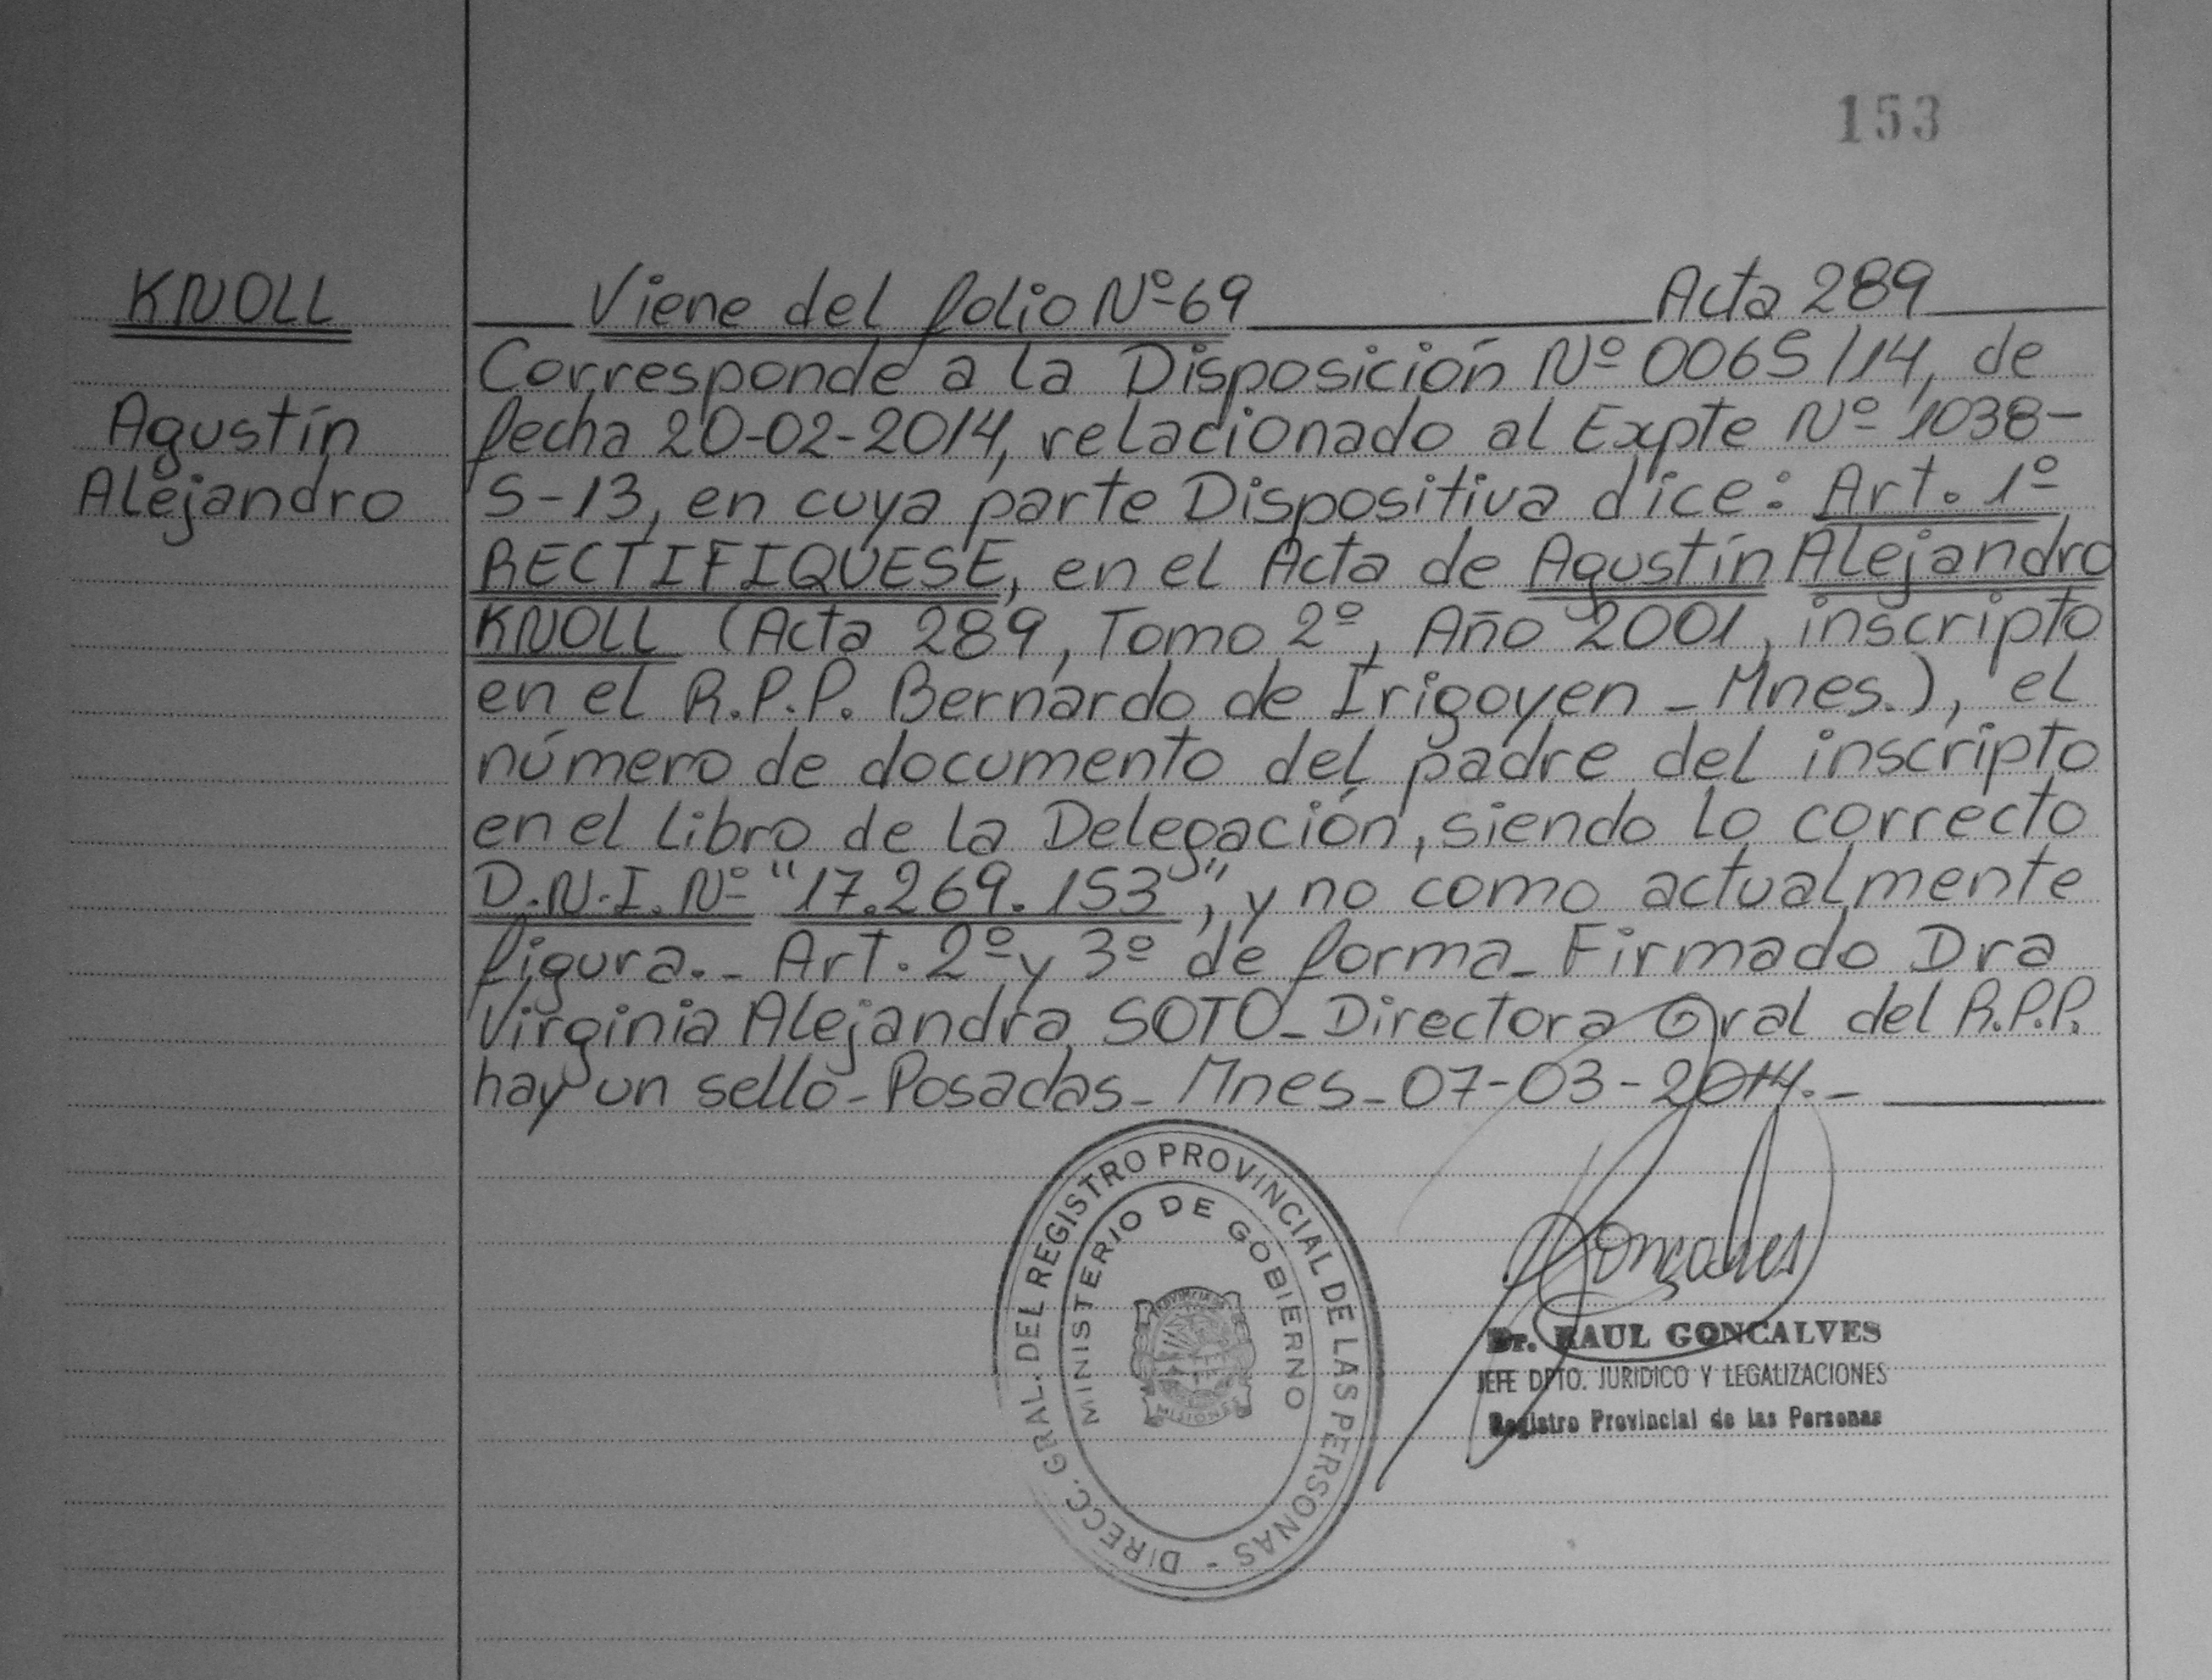 153
KNOLL
Agustín
Alejandro
Viene del folio Nº 69 Acta 289
Corresponde a la Disposición Nº 0065/14, de
fecha 20-02-2014, relacionado al Expte Nº 1038-
S-13, en cuya parte Dispositiva dice: Art. 1º
RECTIFIQUESE, en el Acta de Agustín Alejandro
KNOLL (Acta 289, Tomo 2º, Año 2001, inscripto
en el R.P.P. Bernardo de Irigoyen - Mnes.), el
número de documento del padre del inscripto
en el libro de la Delegación, siendo lo correcto
D.N.I. Nº "17.269.153", y no como actualmente
figura.- Art. 2º y 3º de forma - Firmado Dra
Virginia Alejandra SOTO - Directora Gral del R.P.P.
hay un sello - Posadas - Mnes - 07-03-2014.-
DIRECC. GRAL. DEL REGISTRO PROVINCIAL DE LAS PERSONAS -
MINISTERIO DE GOBIERNO
PROVINCIA DE
MISIONES
Goncalves
Dr. RAUL GONCALVES
JEFE DPTO. JURIDICO Y LEGALIZACIONES
Registro Provincial de las Personas